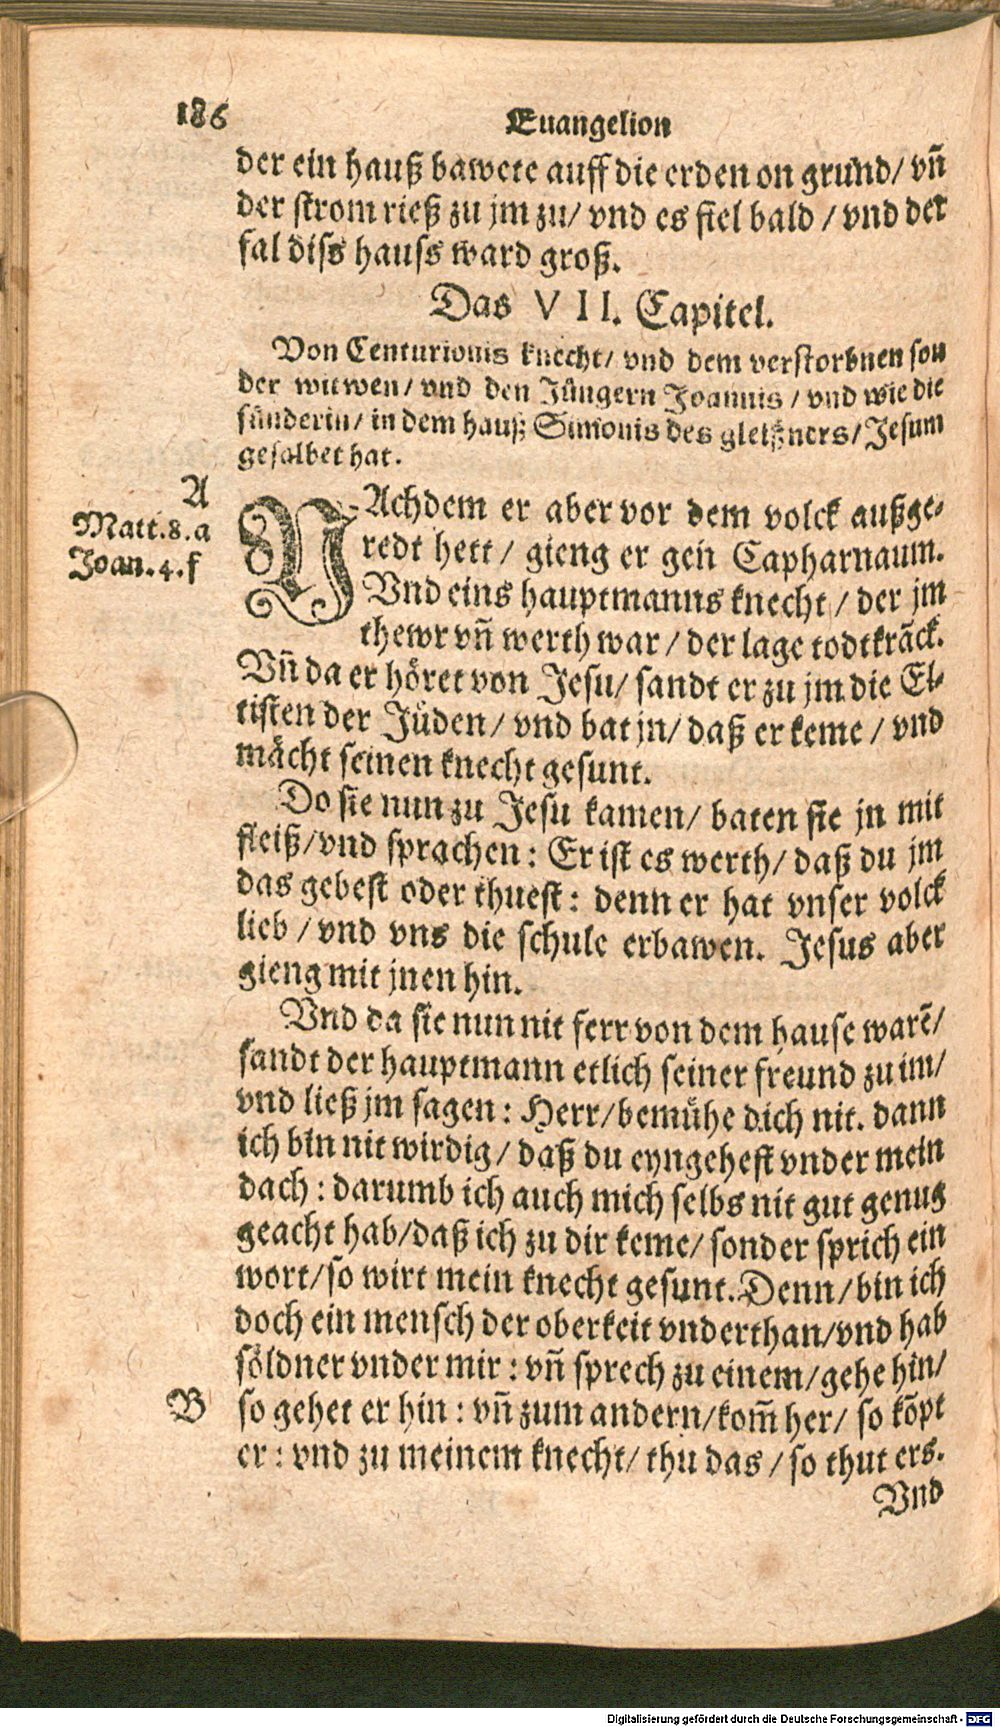 186
Euangelion
der ein hauß bawete auff die erden on grund/ vñ
der strom rieß zu jm zu/ vnd es fiel bald / vnd der
fal diss hauss ward groß.
Das VII. Capitel.
Von Centurionis knecht/ vnd dem verstorbnen son
der witwen/ vnd den Jüngern Joannis / vnd wie die
sünderin/ in dem hauß Simonis des gleißners/ Jesum
gesalbet hat.
A
Matt.8.a
Joan.4.f
NAchdem er aber vor dem volck außge-
redt hett / gieng er gen Capharnaum.
Vnd eins hauptmanns knecht / der jm
thewr vñ werth war / der lage todtkrāck.
Vñ da er höret von Jesu/ sandt er zu jm die El-
tisten der Jüden/ vnd bat jn/ daß er keme / vnd
mächt seinen knecht gesunt.
Do sie nun zu Jesu kamen/ baten sie jn mit
fleiß/vnd sprachen: Er ist es werth/ daß du jm
das gebest oder thuest: denn er hat vnser volck
lieb / vnd vns die schule erbawen. Jesus aber
gieng mit jnen hin.
Vnd da sie nun nit ferr von dem hause warē/
sandt der hauptmann etlich seiner freund zu im/
vnd ließ jm sagen: Herr/bemühe dich nit. dann
ich bin nit wirdig/ daß du eyngehest vnder mein
dach: darumb ich auch mich selbs nit gut genug
geacht hab/daß ich zu dir keme/ sonder sprich ein
wort/so wirt mein knecht gesunt. Denn/bin ich
doch ein mensch der oberkeit vnderthan/vnd hab
söldner vnder mir: vñ sprech zu einem/gehe hin/
B
so gehet er hin: vñ zum andern/kom̄ her/ so kōpt
er: vnd zu meinem knecht/ thu das / so thut ers.
Vnd
Digitalisierung gefördert durch die Deutsche Forschungsgemeinschaft - DFG